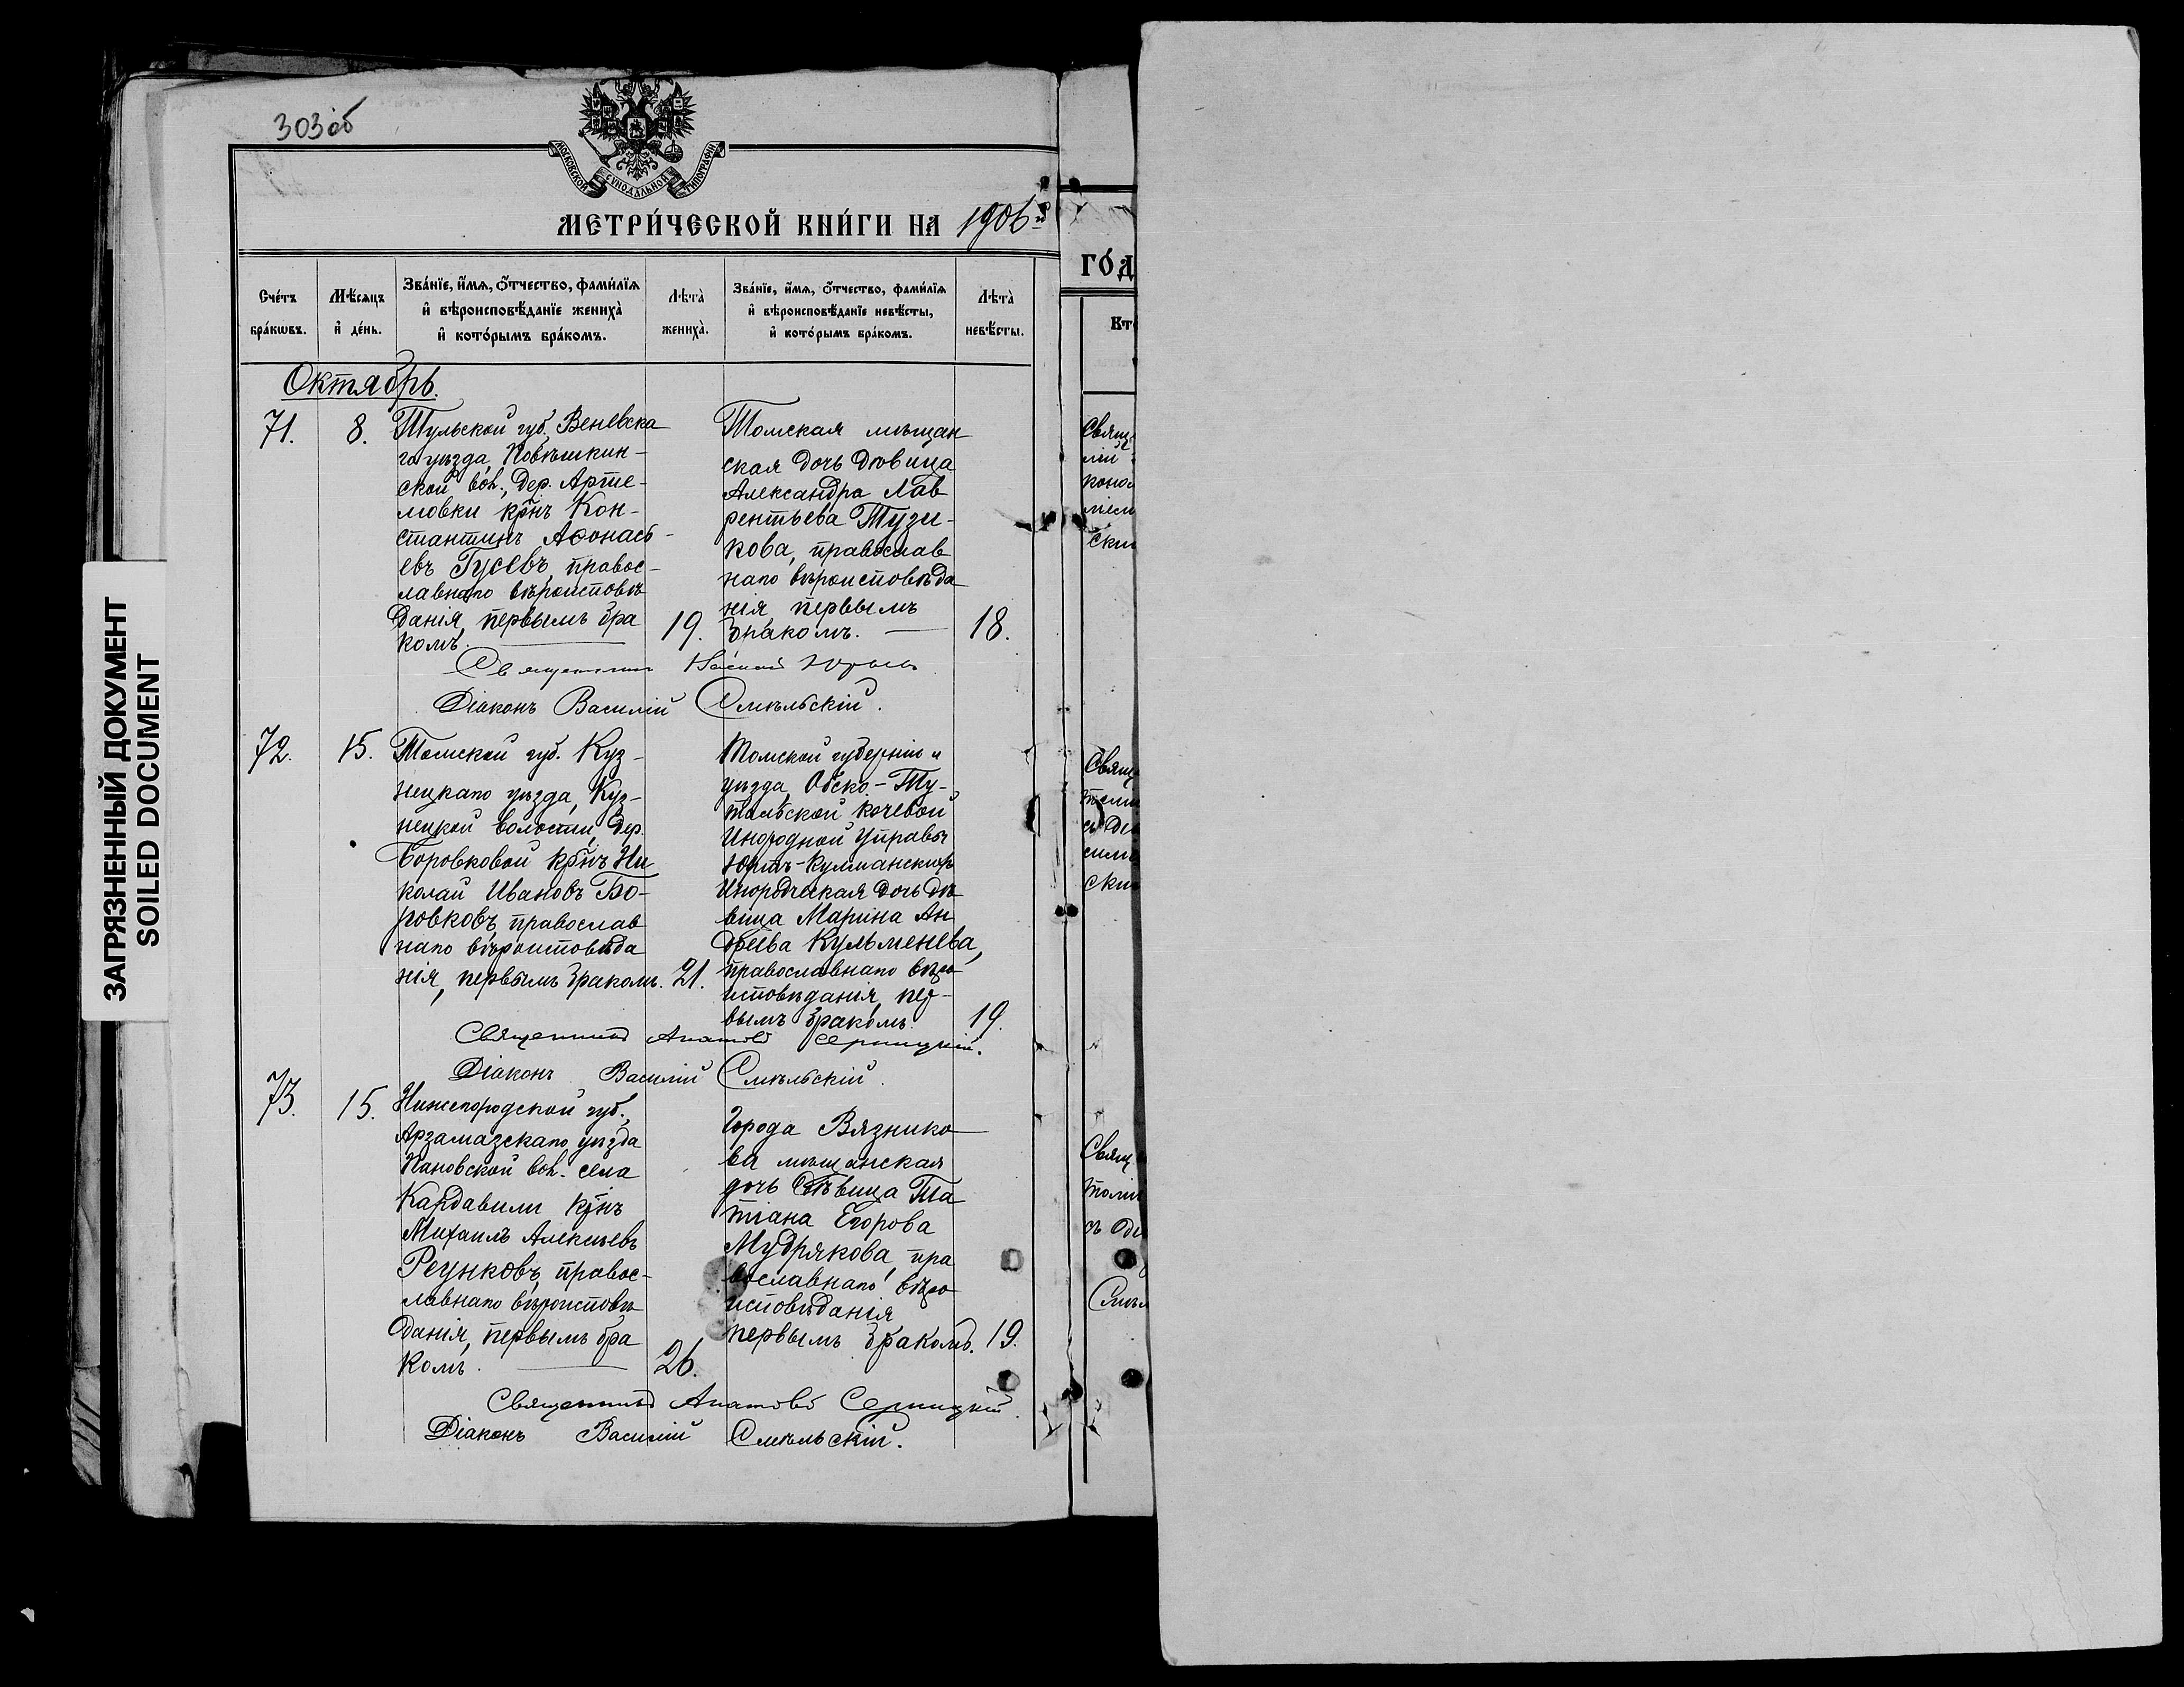 303 об
МОСКОВСКОЙ СУНОДАЛЬНОЙ ТИПОГРАФІИ
МЕТРИ́ЧЕСКОЙ КНИ́ГИ НА 1906 й
ГО́Д
Сче́тъ бра́кѡвъ.
Мѣ́сѧцъ и҆ де́нь.
Зва́нїе, и҆́мѧ, ѻ҆́тчество, фами́лїѧ
и҆ вѣроисповѣ́данїе жениха̀
и҆ кото́рымъ бра́комъ.
Лѣта̀ жениха̀.
Зва́нїе, и҆́мѧ, ѻ҆́тчество, фами́лїѧ
и҆ вѣроисповѣ́данїе невѣ́сты,
и҆ кото́рымъ бра́комъ.
Лѣта̀ невѣ́сты.
Кто
Октябрь.
71.
8.
Тульской губ. Веневска
го уѣзда,
ской вол., дер. Арте-
мовки крнъ Кон-
стантинъ Аѳонась-
евъ Гусевъ, правос-
лавнаго вѣроисповѣ
данія, первымъ бра
комъ.
19.
Томская мѣщан
ская дочь дѣвица
Александра Лав
рентьева Тузи-
кова, православ
наго вѣроисповѣда
нія, первымъ
бракомъ.
18.
Священникъ
Діаконъ Василій Смѣльскій.
72.
15.
Томской губ. Куз-
нецкаго уѣзда, Куз-
нецкой волости, дер.
Боровковой крнъ Ни
колай Ивановъ Бо-
ровковъ, православ
наго вѣроисповѣда
нія, первымъ бракомъ.
21.
Томской губерніи и
уѣзда, Обско-Ту-
тальской кочевой
Инородной Управы
Юртъ-
Инородческая дочь дѣ
вица Марина Ан
дреева Кульменева,
православнаго вѣро
исповѣданія, пер-
вымъ бракомъ.
19.
Священникъ
Діаконъ Василій Смѣльскій.
73.
15.
Нижегородской губ.,
Арзамазскаго уѣзда
Пановской вол. села
Кардавили крнъ
Михаилъ Алексѣевъ
Реунковъ, правос-
лавнаго вѣроисповѣ
данія, первымъ бра
комъ.
26.
Города Вязнико
ва мѣщанская
дочь дѣвица Та
тіана Егорова
Мудрякова, пра
вославнаго вѣро
исповѣданія
первымъ бракомъ.
19.
Священникъ
Діаконъ Василій Смѣльскій.
ЗАГРЯЗНЕННЫЙ ДОКУМЕНТ
SOILED DOCUMENT